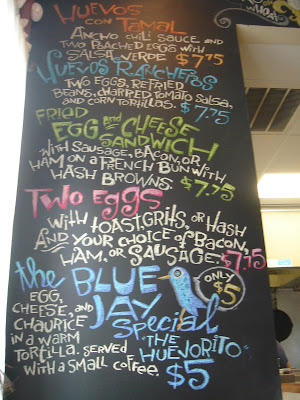 HUEVOS
CON TAMAL
ANCHO CHILI SAUCE AND
TWO POACHED EGGS WITH
SALSA VERDE $7.75
HUEVOS RANCHEROS
TWO EGGS, REFRIED
BEANS, CHARRED TOMATO SALSA,
AND CORN TORTILLAS. $7.75
FRIED
EGG and CHEESE
SANDWICH
WITH SAUSAGE, BACON, OR
HAM ON A FRENCH BUN WITH
HASH BROWNS. $7.75
TWO EGGS
WITH TOAST, GRITS, OR HASH
AND YOUR CHOICE OF BACON,
HAM, OR SAUSAGE. $7.75
the BLUE JAY Special
ONLY $5
"THE HUEVORITO"
EGG,
CHEESE, AND
CHAURICE
IN A WARM
TORTILLA. SERVED
WITH A SMALL COFFEE. $5